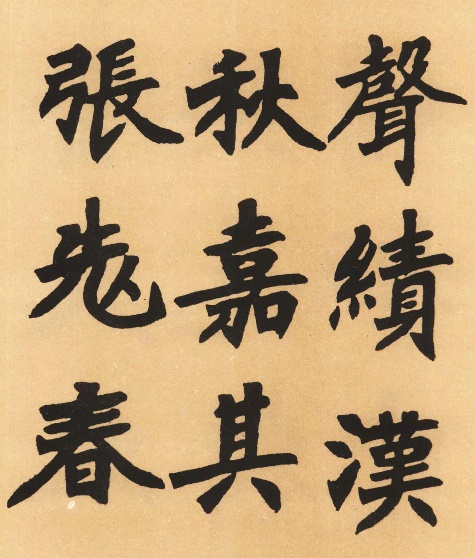 張老春
秋嘉其
聲績漢